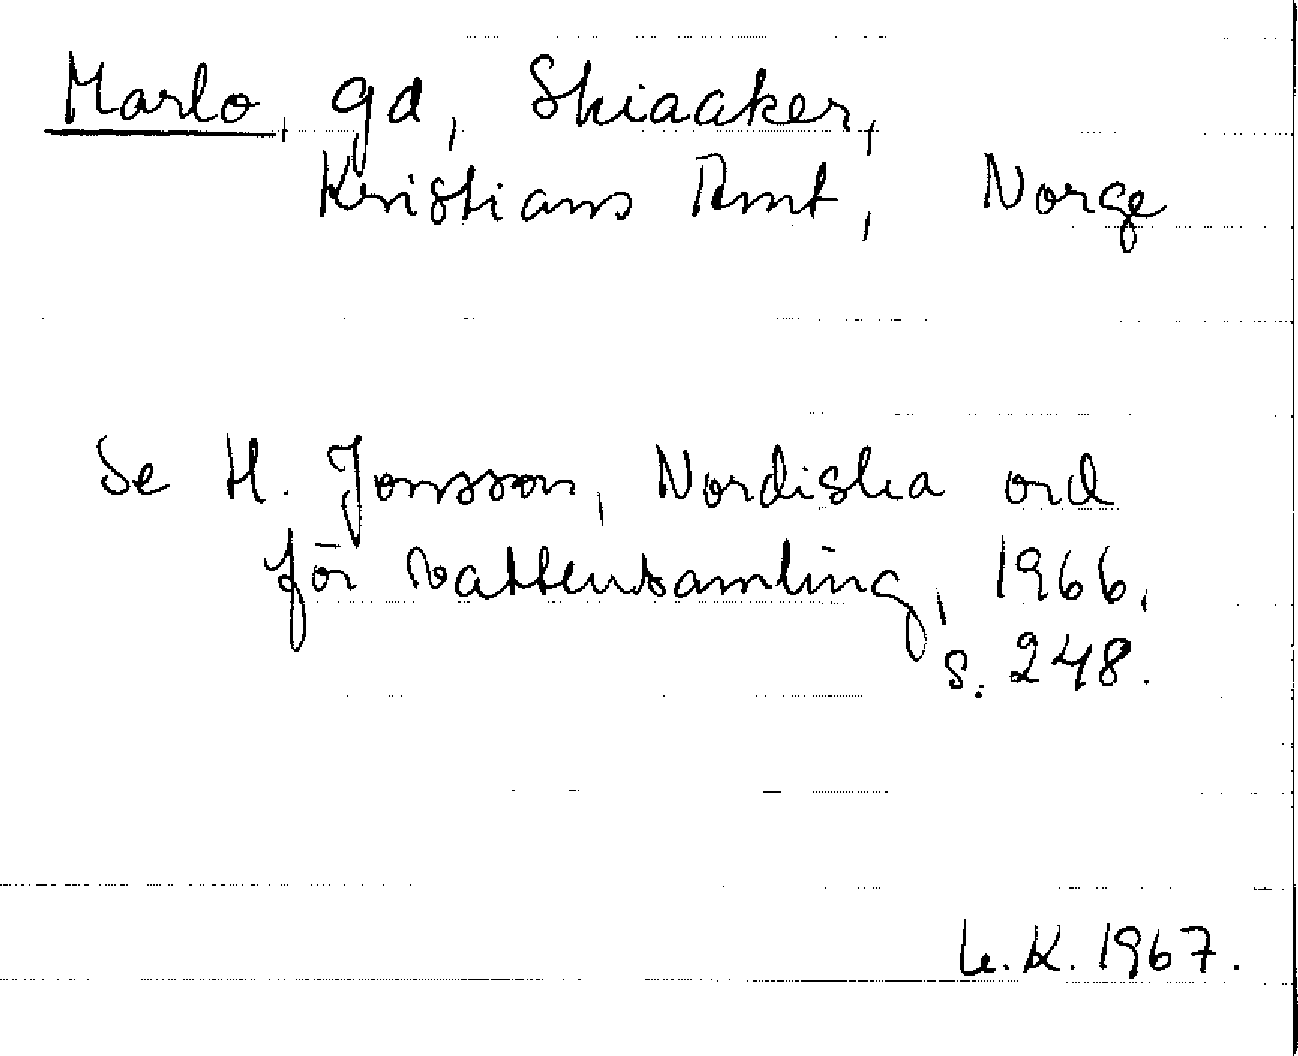 Marlo, gd, Skiaaker,
Kristians Amt, Norge
Se H. Jonsson, Nordiska ord
för vattensamling, 1966,
s. 248.
L.K. 1967.